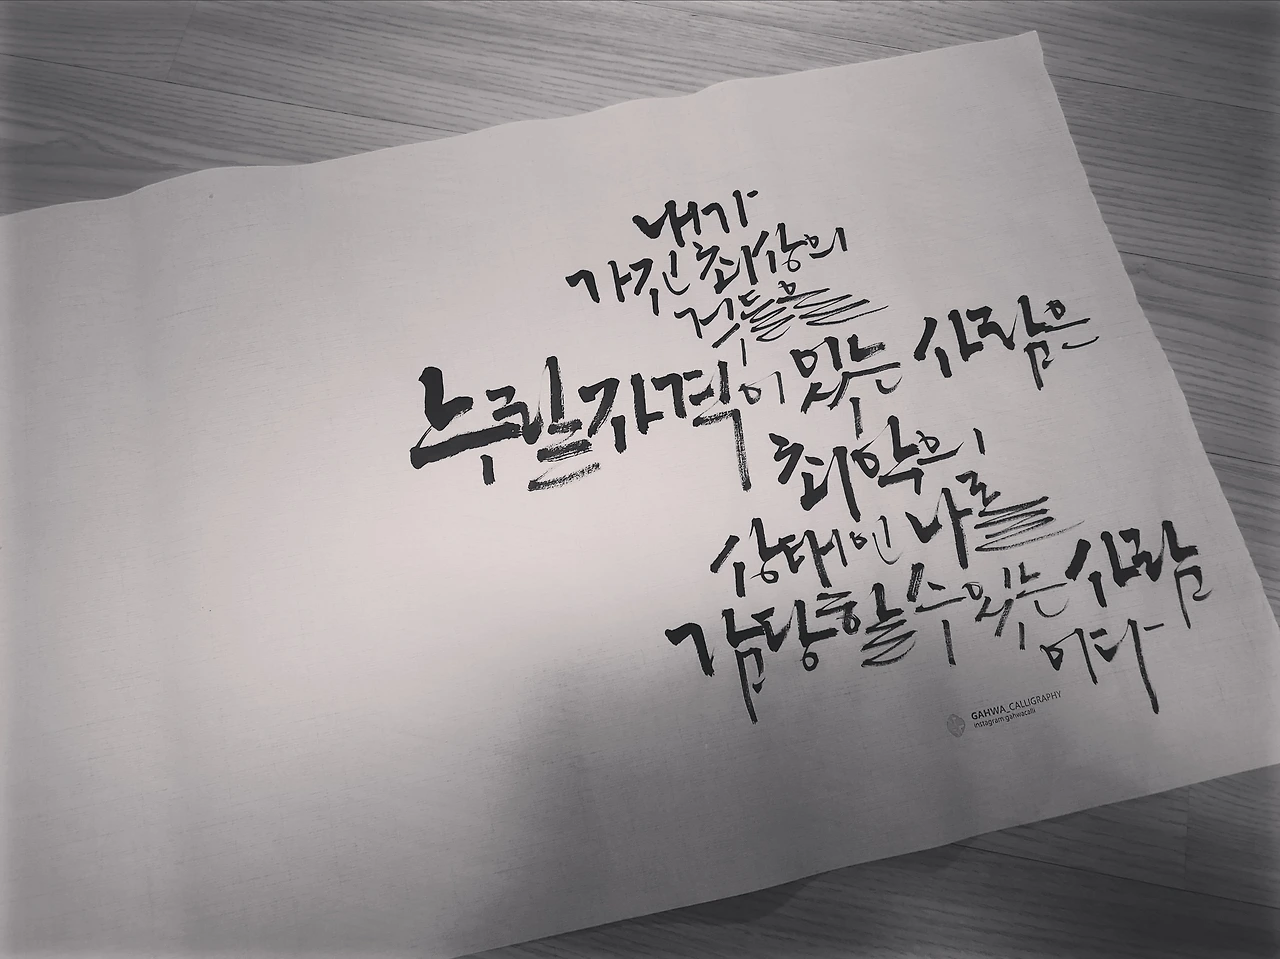 내가
가진 최상의
것들을
누릴 자격이 있는 사람은
최악의
상태인 나를
감당할 수 있는 사람
이다
GAHWA_CALLIGRAPHY
instagram gahwacalli